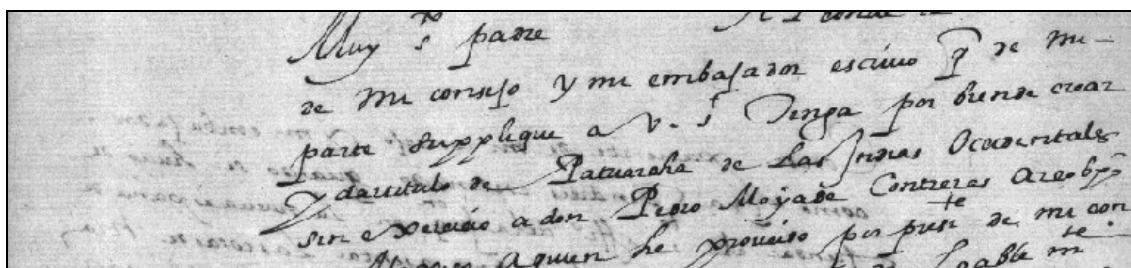 Muy s.to padre Al conde de
de mi consejo y mi embajador escriuo q de mi
parte supplique a v. s.d Tenga por bien de crear
y dar titulo de Patriarcha de las Indias Occidentales
sin exercicio a don Pedro Moya de Contreras Arçobpo
Mexico a quien he proueido por presi.te de mi con